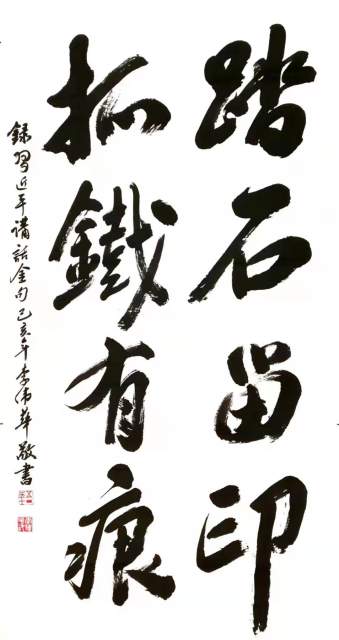 踏石留印
抓鐵有痕
録習近平講話金句己亥年李伟華敬書